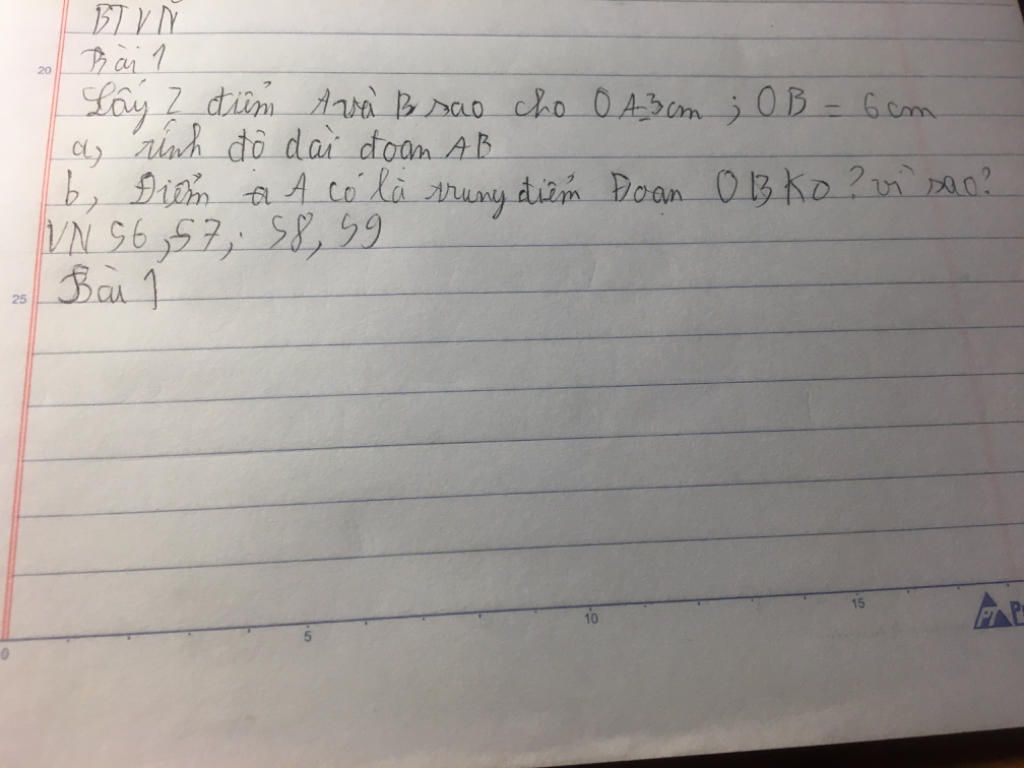 BTVN
20
Bài 1
Lấy 2 điểm A và B sao cho OA=3cm ; OB = 6cm
a, tính độ dài đoan AB
b, Điểm a A có là trung điểm Đoan OB KO? vì sao?
VN 56, 57, 58, 59
25 Bài 1
0 5 10 15